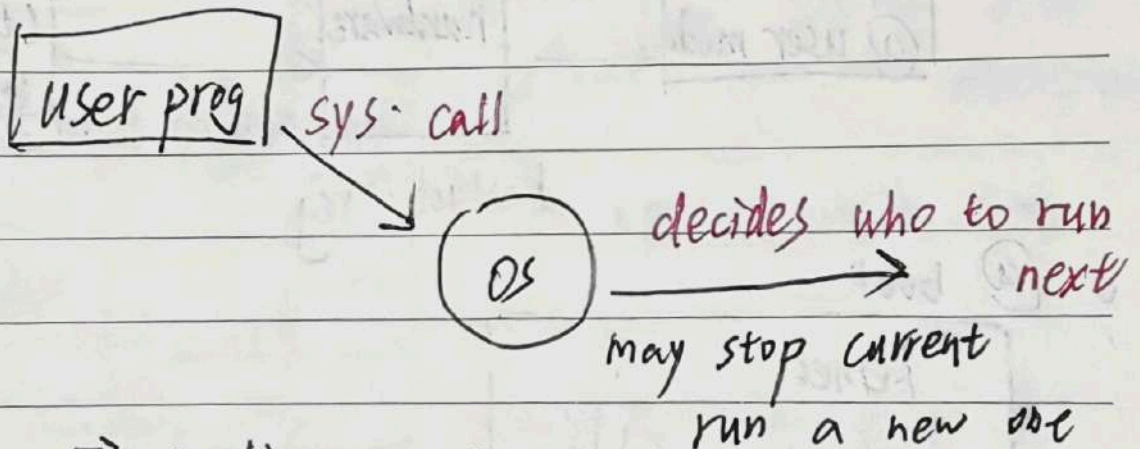 user prog
sys. call
decides who to run
next
OS
may stop current
run a new one